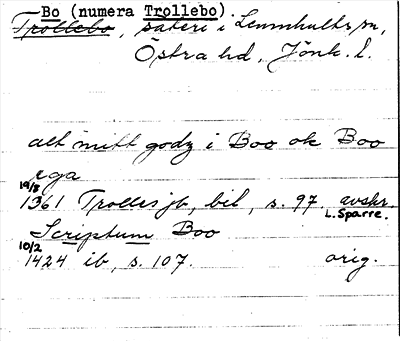 Bo (numera Trollebo)
Trollebo, säteri i Lemnhults sn,
Östra hd, Jönk. l.
alt mitt godz i Boo ok Boo
ega
19/8
1361 Trolles jb, bil, s. 97. avskr.
L. Sparre.
Scriptum Boo
10/2
1424 ib, s. 107. orig.